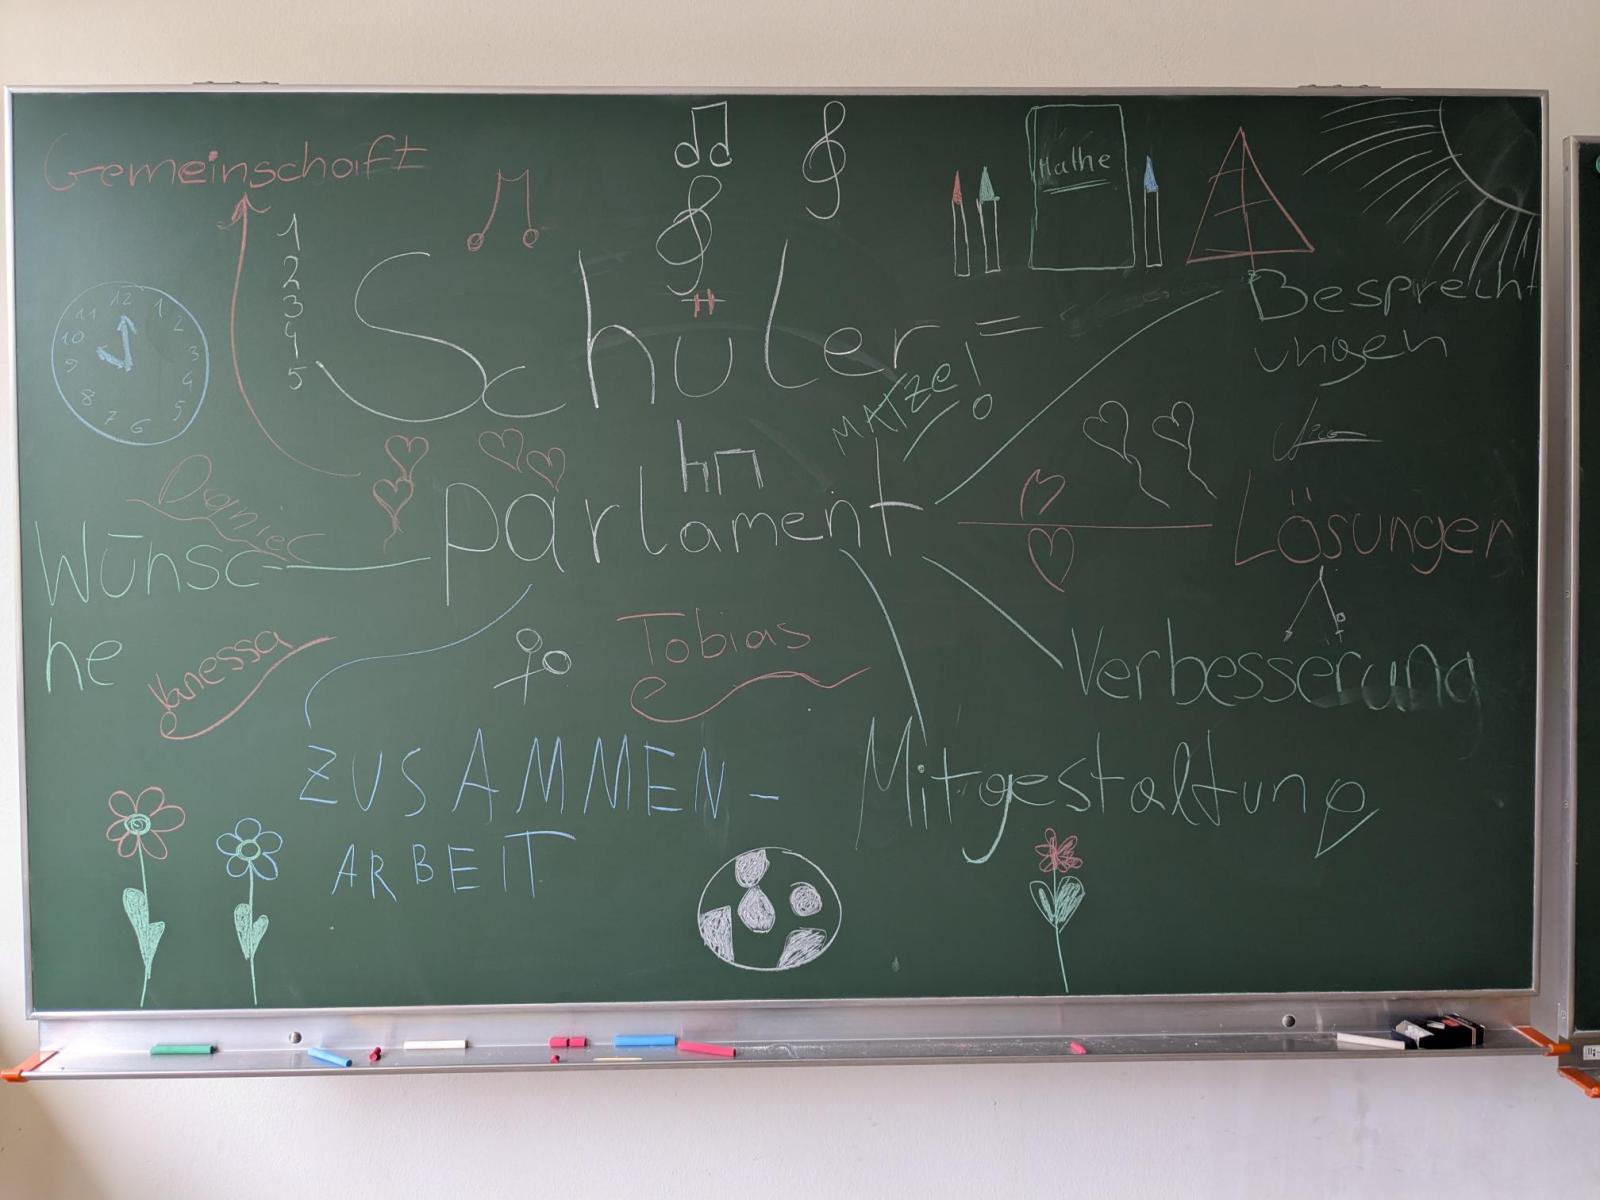 Gemeinschaft
Mathe
1
2
3
4
5
12
1
2
3
4
5
6
7
8
9
10
11
Schüler =
Besprech-
ungen
MATZE!
parlament
Daniel
Wünsc-
he
Lösungen
Vanessa
Tobias
Verbesserung
ZUSAMMEN-
ARBEIT
Mitgestaltung